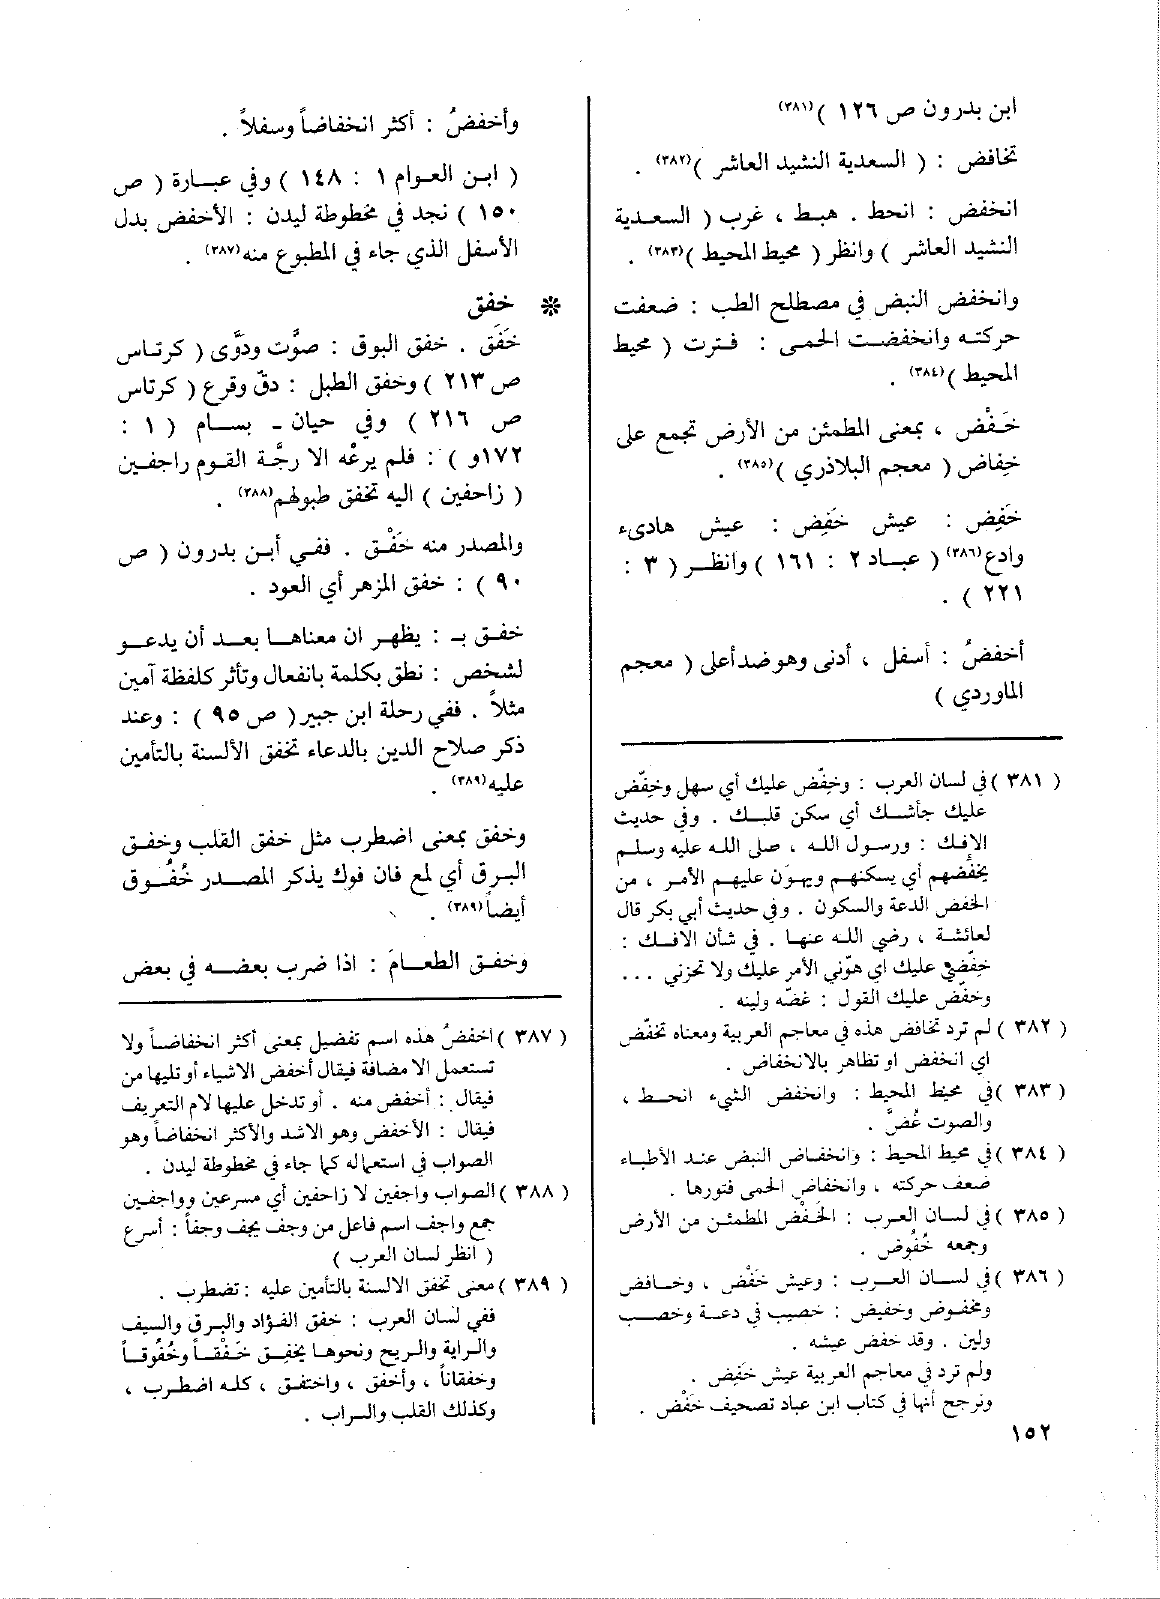 ابن بدرون ص ١٢٦ )(٣٨١)
تخافض : ( السعدية النشيد العاشر )(٣٨٢) .
انخفض : انحط . هبط ، غرب ( السعدية
النشيد العاشر ) وانظر ( محيط المحيط )(٣٨٣) .
وانخفض النبض في مصطلح الطب : ضعفت
حركته وانخفضت الحمى : فترت ( محيط
المحيط )(٣٨٤) .
خَفْض ، بمعنى المطمئن من الأرض تجمع على
خِفاض ( معجم البلاذري )(٣٨٥) .
خَفِض : عيش خَفِض : عيش هادىء
وادع(٣٨٦) ( عباد ٢ : ١٦١ ) وانظر ( ٣ :
٢٢١ ) .
أخفضُ : أسفل ، أدنى وهو ضد أعلى ( معجم
الماوردي )
( ٣٨١ ) في لسان العرب : وخفِّض عليك أي سهل وخفِّض
عليك جأشك أي سكن قلبك . وفي حديث
الإفك : ورسول الله ، صلى الله عليه وسلم
يخفّضهم أي يسكنهم ويهوّن عليهم الأمر ، من
الخفض الدعة والسكون . وفي حديث أبي بكر قال
لعائشة ، رضي الله عنها . في شأن الافك :
خفّضي عليك اي هوّني الأمر عليك ولا تحزني ...
وخفّض عليك القول : غضّه ولينه .
( ٣٨٢ ) لم ترد تخافض هذه في معاجم العربية ومعناه تخفّض
اي انخفض او تظاهر بالانخفاض .
( ٣٨٣ ) في محيط المحيط : وانخفض الشيء انحط ،
والصوت غُضَّ .
( ٣٨٤ ) في محيط المحيط : وانخفاض النبض عند الأطباء
ضعف حركته ، وانخفاض الحمى فتورها .
( ٣٨٥ ) في لسان العرب : الخَفْض المطمئن من الأرض
وجمعه خُفُوض .
( ٣٨٦ ) في لسان العرب : وعيش خَفْض ، وخافض
ومخفوض وخفيض : خصيب في دعة وخصب
ولين . وقد خفض عيشه .
ولم ترد في معاجم العربية عيش خَفِض .
ونرجح أنها في كتاب ابن عباد تصحيف خَفْض .
١٥٢
وأخفضُ : أكثر انخفاضاً وسفلاً .
( ابن العوام ١ : ١٤٨ ) وفي عبارة ( ص
١٥٠ ) نجد في مخطوطة ليدن : الأخفض بدل
الأسفل الذي جاء في المطبوع منه(٣٨٧) .
* خفق
خَفَق . خفق البوق : صوَّت ودَوَّى ( كرتاس
ص ٢١٣ ) وخفق الطبل : دقّ وقرع ( كرتاس
ص ٢١٦ ) وفي حيان - بسام ( ١ :
١٧٢و ) : فلم يرعْه الا رجَّة القوم راجفين
( زاحفين ) اليه تخفق طبولهم(٣٨٨) .
والمصدر منه خَفْق . ففي أبن بدرون ( ص
٩٠ ) : خفق المزهر أي العود .
خفق بـ : يظهر ان معناها بعد أن يدعو
لشخص : نطق بكلمة بانفعال وتأثر كلفظة آمين
مثلاً . ففي رحلة ابن جبير ( ص ٩٥ ) : وعند
ذكر صلاح الدين بالدعاء تخفق الألسنة بالتأمين
عليه(٣٨٩) .
وخفق بمعنى اضطرب مثل خفق القلب وخفق
البرق أي لمع فان فوك يذكر المصدر خُفُوق
أيضاً(٣٨٩) .
وخفق الطعامَ : اذا ضرب بعضه في بعض
( ٣٨٧ ) اخفضُ هذه اسم تفضيل بمعنى أكثر انخفاضاً ولا
تستعمل الا مضافة فيقال أخفض الاشياء أو تليها من
فيقال : أخفض منه . أو تدخل عليها لام التعريف
فيقال : الأخفض وهو الاشد والأكثر انخفاضاً وهو
الصواب في استعماله كما جاء في مخطوطة ليدن .
( ٣٨٨ ) الصواب واجفين لا زاحفين أي مسرعين وواجفين
جمع واجف اسم فاعل من وجف يجف وجفاً : أسرع
( انظر لسان العرب )
( ٣٨٩ ) معنى تخفق الالسنة بالتأمين عليه : تضطرب .
ففي لسان العرب : خفق الفؤاد والبرق والسيف
والراية والريح ونحوها يخفِق خَفْقاً وخُفُوقاً
وخفقاناً ، وأخفق ، واختفق ، كله اضطرب ،
وكذلك القلب والسراب .